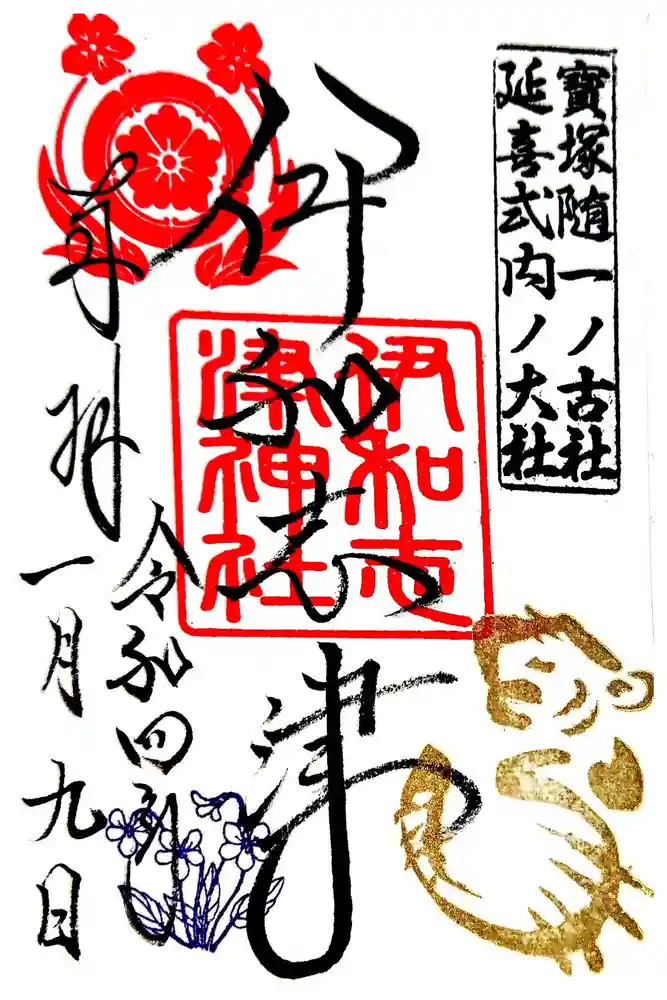 寳塚随一ノ古社
延喜式内ノ大社
伊和志津
伊和志
津神社
奉拝
令和四年
一月九日